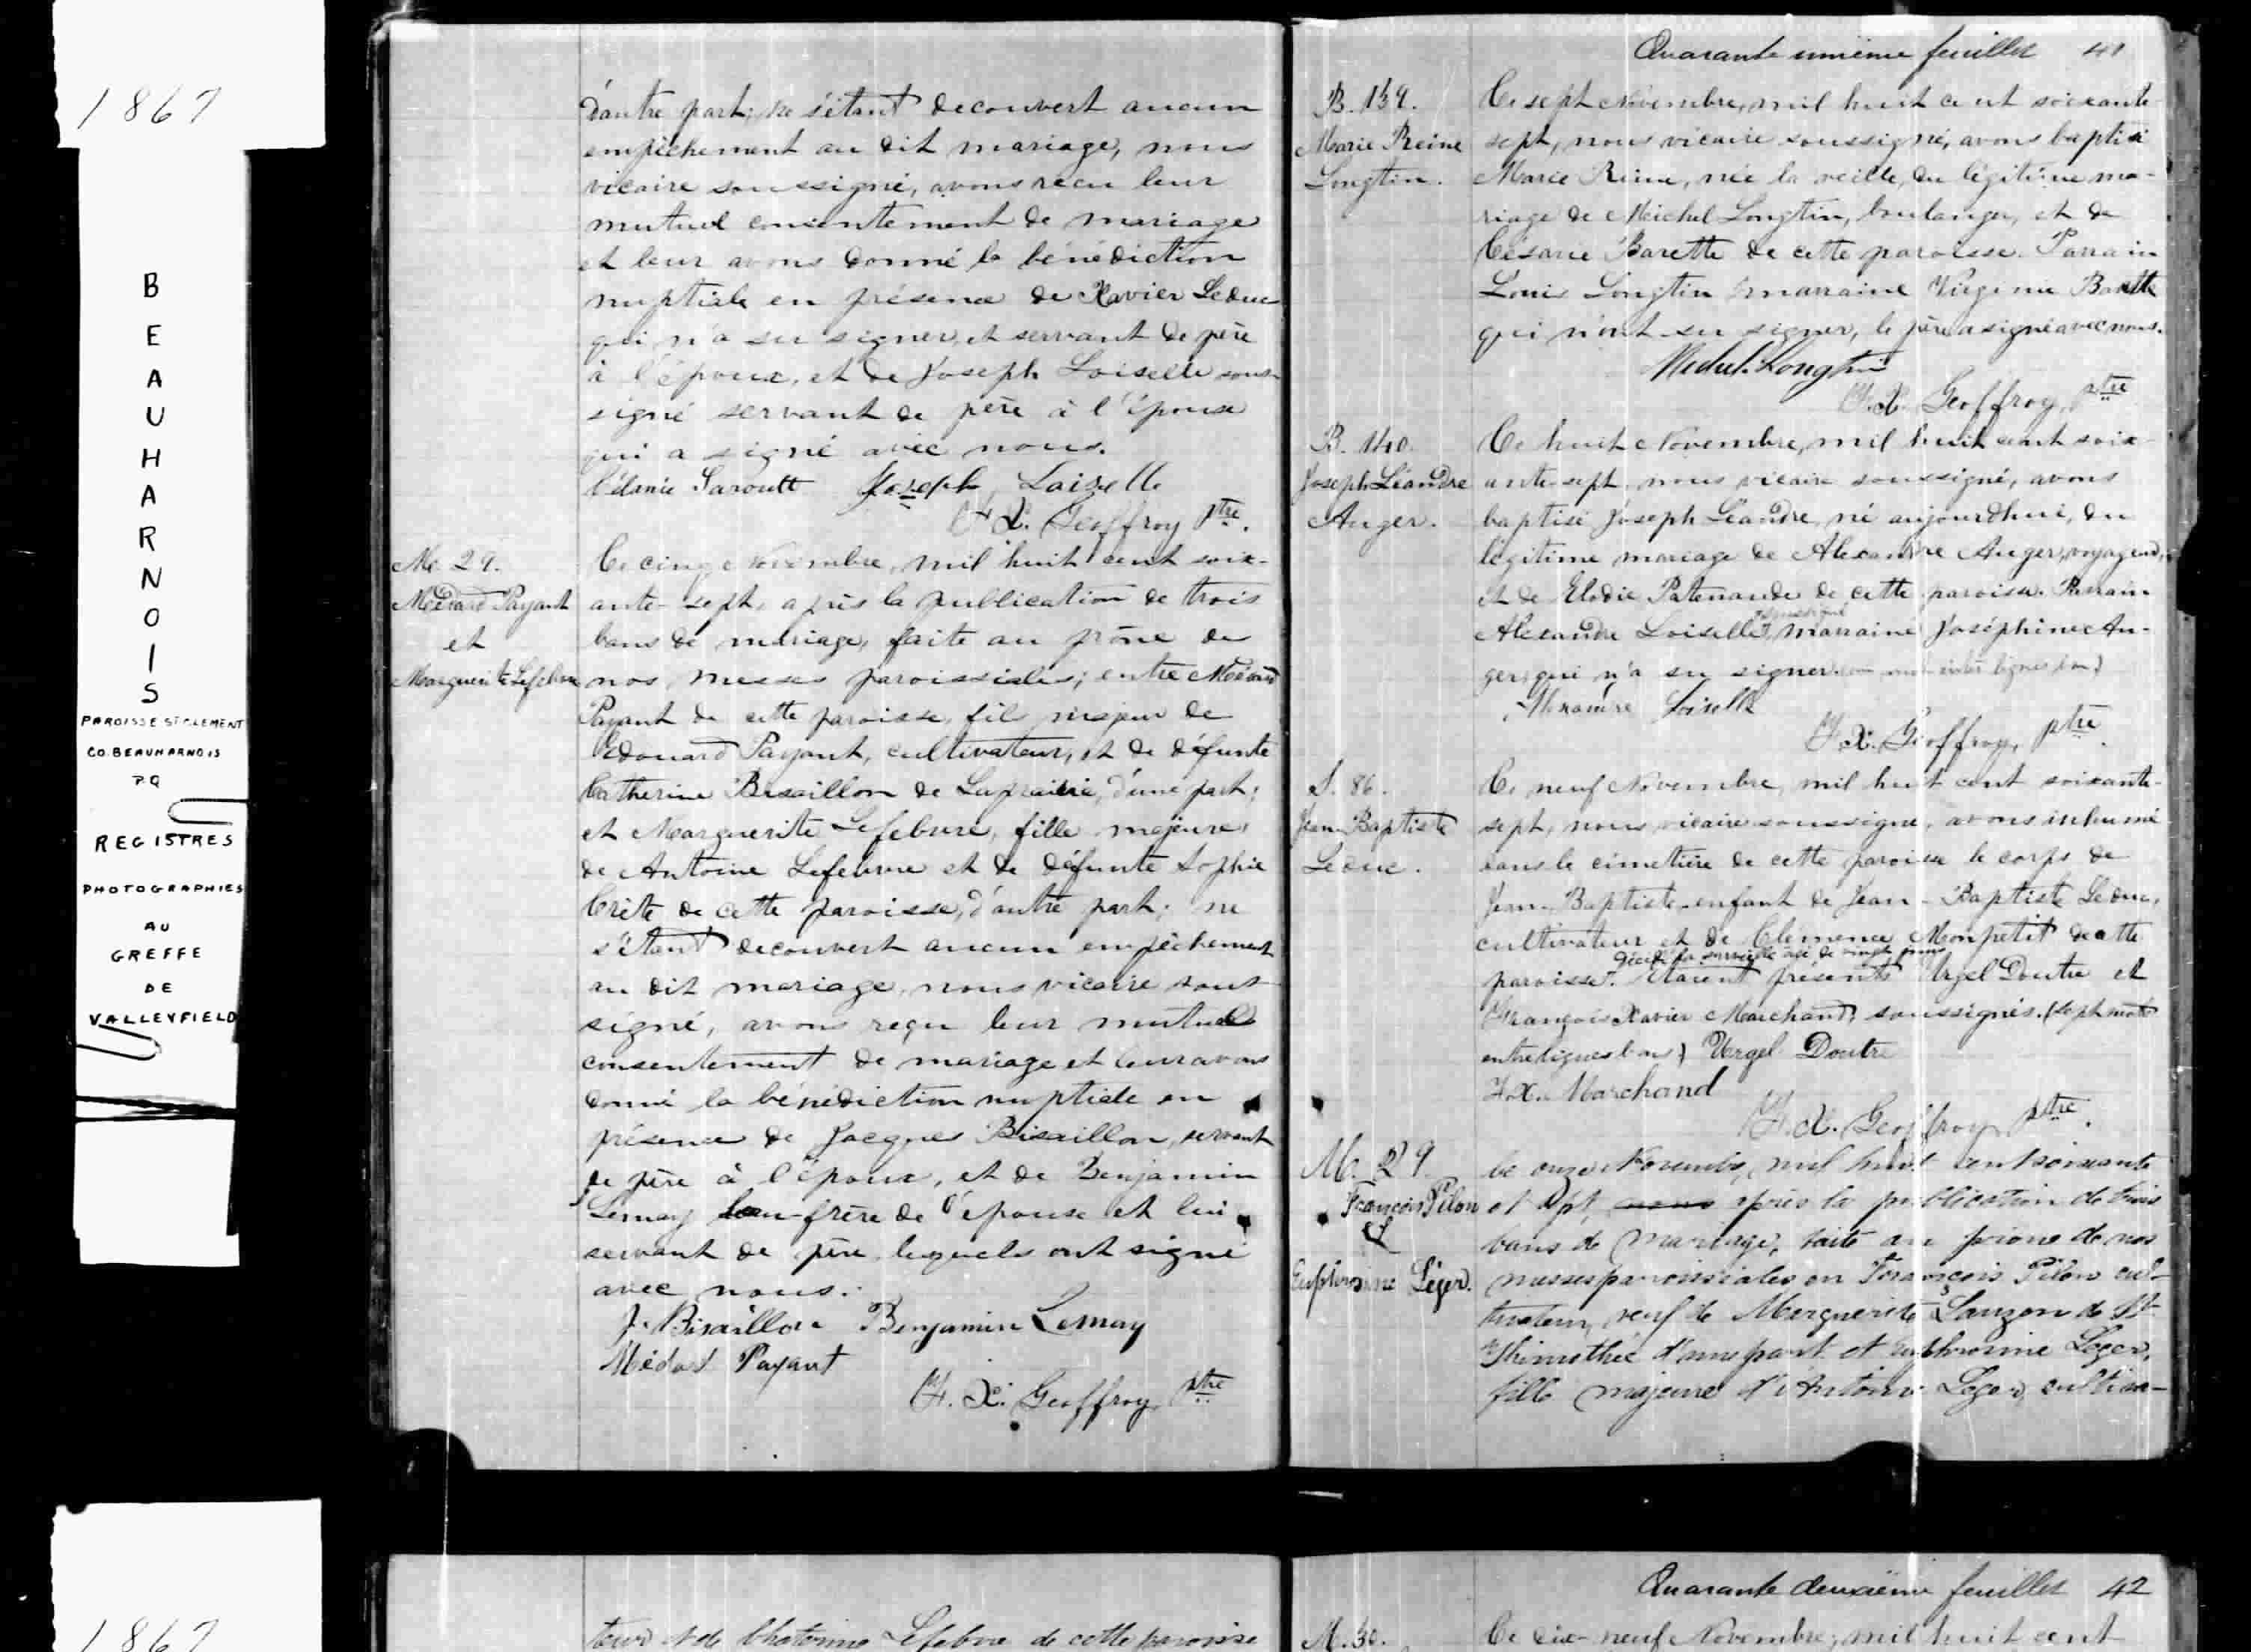 1867
BEAUHARNOIS
PAROISSE ST CLEMENT
CO. BEAUHARNOIS
P.Q
REGISTRES
PHOTOGRAPHIES
AU
GREFFE
DE
VALLEYFIELD
d'autre part; ne s'étant decouvert aucun
empêchement au dit mariage, nous
vicaire soussigné, avons recu leur
mutuel consentement de mariage
et leur avons donné la bénédiction
nuptiale en présence de Xavier Leduc
qui n'a su signer, et servant de père
à l'époux, et de Joseph Loiselle sous-
signé servant de père à l'épouse
qui a signé avec nous.
Joseph Loiselle
F. X. Geoffroy Ptre.
M. 29.
Médard Payant
et
Marguerite Lefebvre
Ce cinq Novembre, mil huit cent soix-
ante-sept, après la publication de trois
bans de mariage, faite au prône de
nos messes paroissiales; entre Médard
Payant de cette paroisse, fils majeur de
Edouard Payant, cultivateur, et de défunte
Catherine Bisaillon de Laprairie, d'une part;
et Marguerite Lefebvre, fille majeure
de Antoine Lefebvre et de défunte Sophie
Crète de cette paroisse, d'autre part; ne
s'étant decouvert aucun empêchement
au dit mariage, nous vicaire sous-
signé, avons reçu leur mutuel
consentement de mariage et leur avons
donné la bénédiction nuptiale en
présence de Jacques Bisaillon, servant
de père à l'époux, et de Benjamin
Lemay beau-frère de l'épouse et lui
servant de père, lequels ont signé
avec nous.
J. Bisaillon Benjamin Lemay
Médard Payant
F. X. Geoffroy, Ptre
Quarante unième feuillet 41
B. 139.
Marie Reine
Longtin.
Ce sept Novembre, mil huit cent soixante-
sept, nous vicaire soussigné, avons baptisé
Marie Reine, née la veille, du légitime ma-
riage de Michel Longtin, boulanger, et de
Césarie Barette de cette paroisse. Parrain
Louis Longtin marraine Virginie Barette
qui n'ont su signer, le père a signé avec nous.
Michel Longtin
F. X. Geoffroy, Ptre
B. 140.
Joseph Léandre
Auger.
Ce huit Novembre, mil huit cent soix-
ante-sept, nous vicaire soussigné, avons
baptisé Joseph Léandre, né aujourdhui, du
légitime mariage de Alexandre Auger, voyageur,
et de Elodie Patenaude de cette paroisse. Parrain
soussigné
Alexandre Loiselle, marraine Joséphine Au-
ger, qui n'a su signer. (un mot entre lignes bon)
Alexandre Loiselle
F. X. Geoffroy, ptre.
S. 86.
Jean Baptiste
Leduc.
Ce neuf Novembre, mil huit cent soixante-
sept, nous vicaire soussigné, avons inhumé
dans le cimetière de cette paroisse le corps de
Jean-Baptiste enfant de Jean-Baptiste Leduc,
cultivateur et de Clémence Monpetit de cette
décédé la surveille âgé de vingt jours
paroisse. Etaient présents Urgel Doutre et
François Xavier Marchand, soussignés. (sept mots
entre lignes bons) Urgel Doutre
F. X. Marchand
F. X. Geoffroy, Ptre.
M. 29.
François Pilon
et
Euphrosine Léger.
Ce onze Novembre, mil huit cent soixante
et sept, nous après la publication de trois
bans de mariage, faite au prone de nos
messes paroissiales en François Pilon cul-
tivateur, veuf de Marguerite Lauzon de St.
Thimothée d'une part et Euphrosine Léger,
fille majeure d'Antoine Leger, cultiva-
1867
teur et de Chatorine Lefebvre de cette paroisse
Quarante deuxième feuillet 42
M. 30.
Ce dix-neuf Novembre, mil huit cent